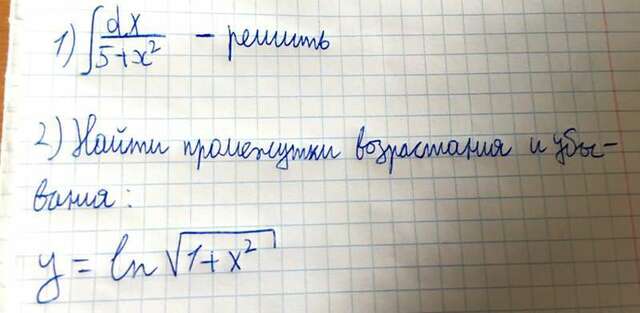 1) ∫ dx/(5+x²) - решить
2) Найти промежутки возрастания и убы-
вания:
y = ln √(1+x²)